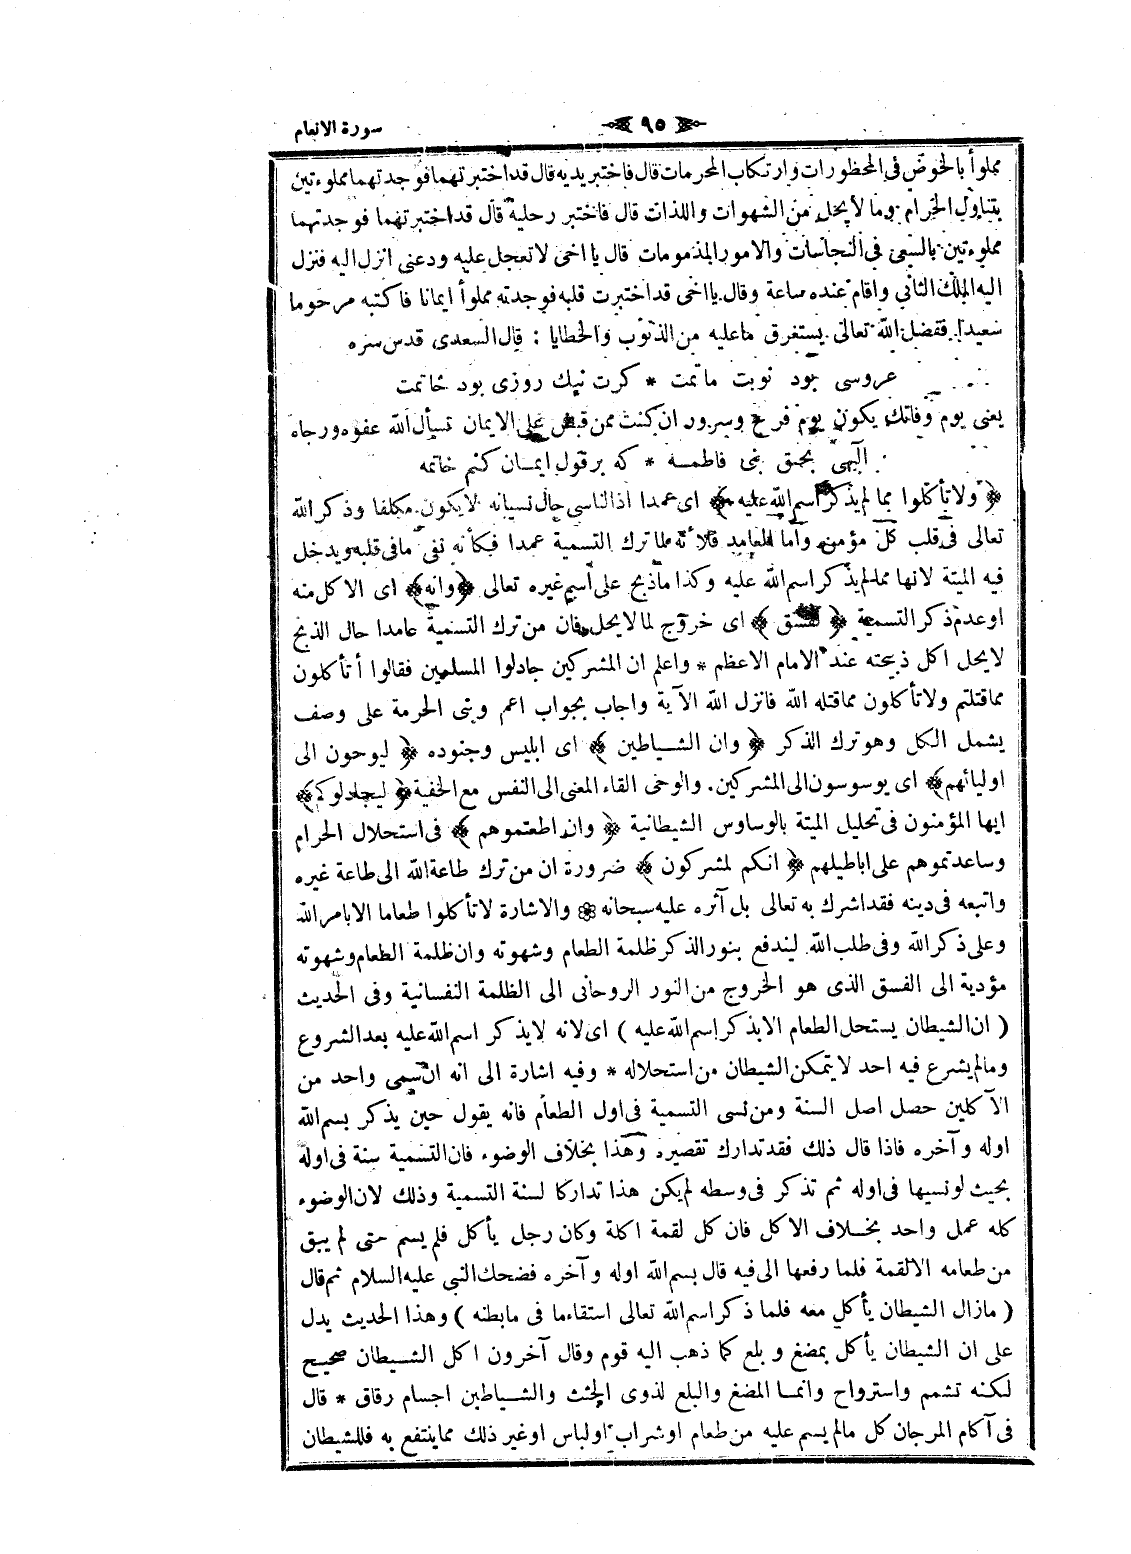 سورة الانعام
٩٥
مملوأ بالخوض فى المحظورات وارتكاب المحرمات قال فاختبر يديه قال قد اختبرتهما فوجدتهما مملوءتين
بتناول الحرام وما لا يحل من الشهوات واللذات قال فاختبر رجليه قال قد اختبرتهما فوجدتهما
مملوءتين بالسعى فى النجاسات والامور المذمومات قال يا اخى لا تعجل عليه ودعنى انزل اليه فنزل
اليه الملك الثانى واقام عنده ساعة وقال يا اخى قد اختبرت قلبه فوجدته مملوأ ايمانا فاكتبه مرحوما
سعيدا ففضل الله تعالى يستغرق ما عليه من الذنوب والخطايا : قال السعدى قدس سره
عروسى بود نوبت ماتمت * كرت نيك روزى بود خاتمت
يعنى يوم وفاتك يكون يوم فرح وسرور ان كنت ممن قبض على الايمان نسأل الله عفوه ورجاه
الهى بحق بنى فاطمه * كه بر قول ايمان كنم خاتمه
﴿ ولا تأكلوا مما لم يذكر اسم الله عليه ﴾ اى عمدا اذ الناسى حال نسيانه لا يكون مكلفا وذكر الله
تعالى فى قلب كل مؤمن واما العامد فلأنه لما ترك التسمية عمدا فكأنه نفى ما فى قلبه ويدخل
فيه الميتة لانها مما لم يذكر اسم الله عليه وكذا ما ذبح على اسم غيره تعالى ﴿ وانه ﴾ اى الاكل منه
او عدم ذكر التسمية ﴿ لفسق ﴾ اى خروج لما لا يحل فان من ترك التسمية عامدا حال الذبح
لا يحل اكل ذبيحته عند الامام الاعظم * واعلم ان المشركين جادلوا المسلمين فقالوا أتأكلون
مما قتلتم ولا تأكلون مما قتله الله فانزل الله الآية واجاب بجواب اعم وبنى الحرمة على وصف
يشمل الكل وهو ترك الذكر ﴿ وان الشياطين ﴾ اى ابليس وجنوده ﴿ ليوحون الى
اوليائهم ﴾ اى يوسوسون الى المشركين. والوحى القاء المعنى الى النفس مع الخفية ﴿ ليجادلوكم ﴾
ايها المؤمنون فى تحليل الميتة بالوساوس الشيطانية ﴿ وان اطعتموهم ﴾ فى استحلال الحرام
وساعدتموهم على اباطيلهم ﴿ انكم لمشركون ﴾ ضرورة ان من ترك طاعة الله الى طاعة غيره
واتبعه فى دينه فقد اشرك به تعالى بل آثره عليه سبحانه ۞ والاشارة لا تأكلوا طعاما الا بامر الله
وعلى ذكر الله وفى طلب الله ليندفع بنور الذكر ظلمة الطعام وشهوته وان ظلمة الطعام وشهوته
مؤدية الى الفسق الذى هو الخروج من النور الروحانى الى الظلمة النفسانية وفى الحديث
( ان الشيطان يستحل الطعام الا بذكر اسم الله عليه ) اى لانه لا يذكر اسم الله عليه بعد الشروع
وما لم يشرع فيه احد لا يتمكن الشيطان من استحلاله * وفيه اشارة الى انه ان سمى واحد من
الآكلين حصل اصل السنة ومن نسى التسمية فى اول الطعام فانه يقول حين يذكر بسم الله
اوله وآخره فاذا قال ذلك فقد تدارك تقصيره وهذا بخلاف الوضوء فان التسمية سنة فى اوله
بحيث لو نسيها فى اوله ثم تذكر فى وسطه لم يكن هذا تداركا لسنة التسمية وذلك لان الوضوء
كله عمل واحد بخلاف الاكل فان كل لقمة اكلة وكان رجل يأكل فلم يسم حتى لم يبق
من طعامه الا لقمة فلما رفعها الى فيه قال بسم الله اوله وآخره فضحك النبى عليه السلام ثم قال
( مازال الشيطان يأكل معه فلما ذكر اسم الله تعالى استقاء ما فى ما بطنه ) وهذا الحديث يدل
على ان الشيطان يأكل بمضغ وبلع كما ذهب اليه قوم وقال آخرون اكل الشيطان صحيح
لكنه تشمم واسترواح وانما المضغ والبلع لذوى الجثث والشياطين اجسام رقاق * قال
فى آكام المرجان كل ما لم يسم عليه من طعام او شراب او لباس او غير ذلك مما ينتفع به فللشيطان